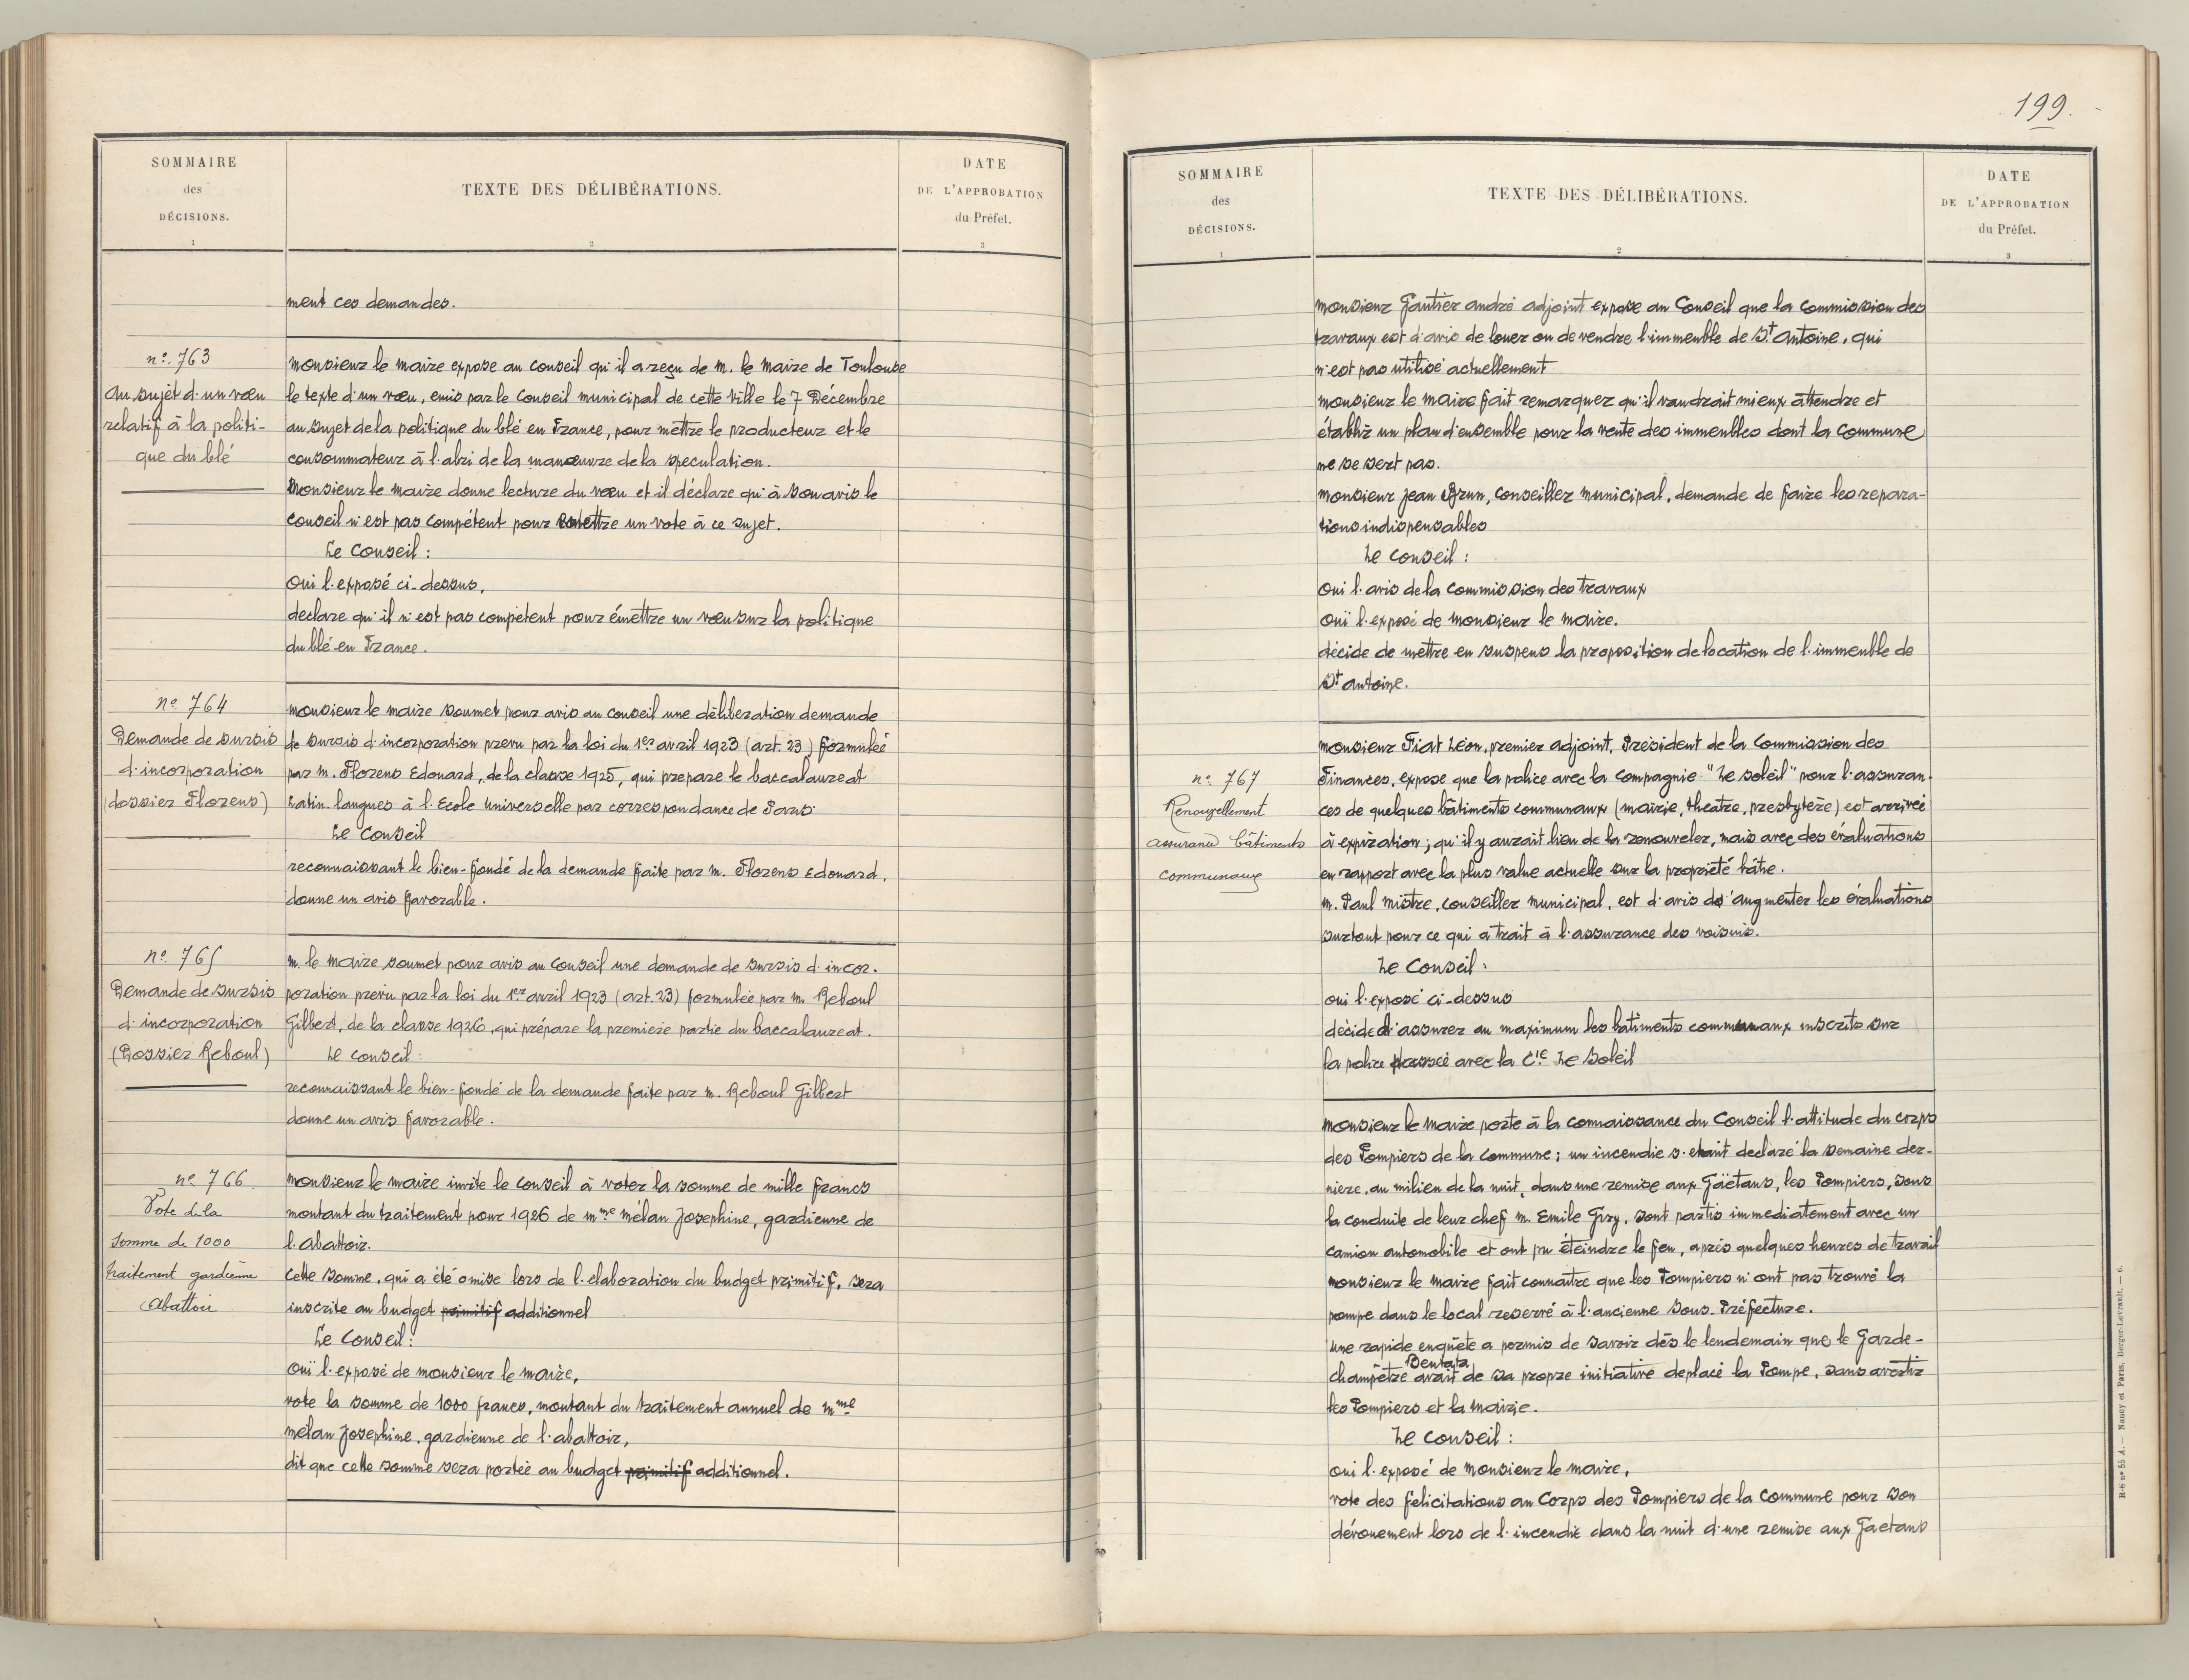 SOMMAIRE
des
DÉCISIONS.
1
TEXTE DES DÉLIBÉRATIONS.
2
DATE
DE L'APPROBATION
du Préfet.
3
ment ces demandes.
n° 763
Au sujet d'un vœu
relatif à la politi-
que du blé
Monsieur le Maire expose au Conseil qu'il a reçu de M. le Maire de Toulouse
le texte d'un vœu, emis par le Conseil municipal de cette Ville le 7 Décembre
au sujet de la politique du blé en France, pour mettre le producteur et le
consommateur à l'abri de la manœuvre de la speculation.
Monsieur le Maire donne lecture du vœu et il déclare qu'à son avis le
Conseil n'est pas compétent pour émettre un vote à ce sujet.
Le Conseil :
Oui l'exposé ci-dessus,
declare qu'il n'est pas compétent pour émettre un vœu sur la politique
du blé en France.
n° 764
Demande de sursis
d'incorporation
(dossier Florens)
Monsieur le Maire soumet pour avis au Conseil une délibération demande
de sursis d'incorporation prevu par la loi du 1er avril 1923 (art. 23) formulée
par M. Florens Edouard, de la classe 1925, qui prepare le baccalaureat
Latin-langues à l'Ecole Universelle par correspondance de Paris.
Le Conseil
reconnaissant le bien-fondé de la demande faite par M. Florens Edouard,
donne un avis favorable.
n° 765
Demande de sursis
d'incorporation
(Dossier Reboul)
M. le Maire soumet pour avis au Conseil une demande de sursis d'incor-
poration prevu par la loi du 1er avril 1923 (art. 23) formulée par M. Reboul
Gilbert, de la classe 1926, qui prépare la première partie du baccalaureat.
Le Conseil :
reconnaissant le bien-fondé de la demande faite par M. Reboul Gilbert
donne un avis favorable.
n° 766
Vote de la
somme de 1000
traitement gardienne
Abattoir
Monsieur le Maire invite le Conseil à voter la somme de mille francs
montant du traitement pour 1926 de Mme Mélan Josephine, gardienne de
l'Abattoir.
Cette somme, qui a été omise lors de l'elaboration du budget primitif, sera
inscrite au budget primitif additionnel
Le Conseil :
Ouï l'exposé de Monsieur le Maire,
vote la somme de 1000 francs, montant du traitement annuel de Mme
Mélan Josephine, gardienne de l'abattoir,
dit que cette somme sera portée au budget primitif additionnel.
199.
SOMMAIRE
des
DÉCISIONS.
1
TEXTE DES DÉLIBÉRATIONS.
2
DATE
DE L'APPROBATION
du Préfet.
3
Monsieur Gautier André adjoint expose au Conseil que la Commission des
travaux est d'avis de louer ou de vendre l'immeuble de St Antoine, qui
n'est pas utilisé actuellement
Monsieur le Maire fait remarquer qu'il vaudrait mieux attendre et
établir un plan d'ensemble pour la vente des immeubles dont la Commune
ne se sert pas.
Monsieur Jean Brun, Conseiller Municipal, demande de faire les repara-
tions indispensables
Le Conseil :
Oui l'avis de la Commission des Travaux
Ouï l'exposé de Monsieur le Maire.
décide de mettre en suspens la proposition de location de l'immeuble de
St Antoine.
n° 767
Renouvellement
assurance bâtiments
communaux
Monsieur Fiat Léon, premier adjoint, Président de la Commission des
Finances, expose que la police avec la Compagnie "Le Soleil" pour l'assuran-
ces de quelques bâtiments communaux (mairie, theatre, presbytère) est arrivée
à expiration ; qu'il y aurait lieu de la renouveler, mais avec des évaluations
en rapport avec la plus value actuelle sur la propriété bâtie.
M. Paul Mistre, Conseiller Municipal, est d'avis d'augmenter les évaluations
surtout pour ce qui a trait à l'assurance des voisins.
Le Conseil :
oui l'exposé ci-dessus
décide d'assurer au maximum les bâtiments communaux inscrits sur
la police avec la Cie Le Soleil
Monsieur le Maire porte à la connaissance du Conseil l'attitude du corps
des Pompiers de la Commune ; un incendie s'etant declaré la semaine der-
nière, au milieu de la nuit, dans une remise aux Gaëtans, les Pompiers, sous
la conduite de leur chef M. Emile Giry, sont partis immediatement avec un
camion automobile et ont pu éteindre le feu, après quelques heures de travail
Monsieur le Maire fait connaitre que les Pompiers n'ont pas trouvé la
pompe dans le local reservé à l'ancienne Sous-Préfecture.
Une rapide enquête a permis de savoir dès le lendemain que le Garde-
Bentata
champêtre avait de sa propre initiative deplacé la Pompe, sans avertir
les Pompiers et la Mairie.
Le Conseil :
Oui l'exposé de Monsieur le Maire,
vote des felicitations au Corps des Pompiers de la Commune pour son
dévouement lors de l'incendie dans la nuit d'une remise aux Gaetans
R-S n° 55 A. — Nancy et Paris, Berger-Levrault. — 6.